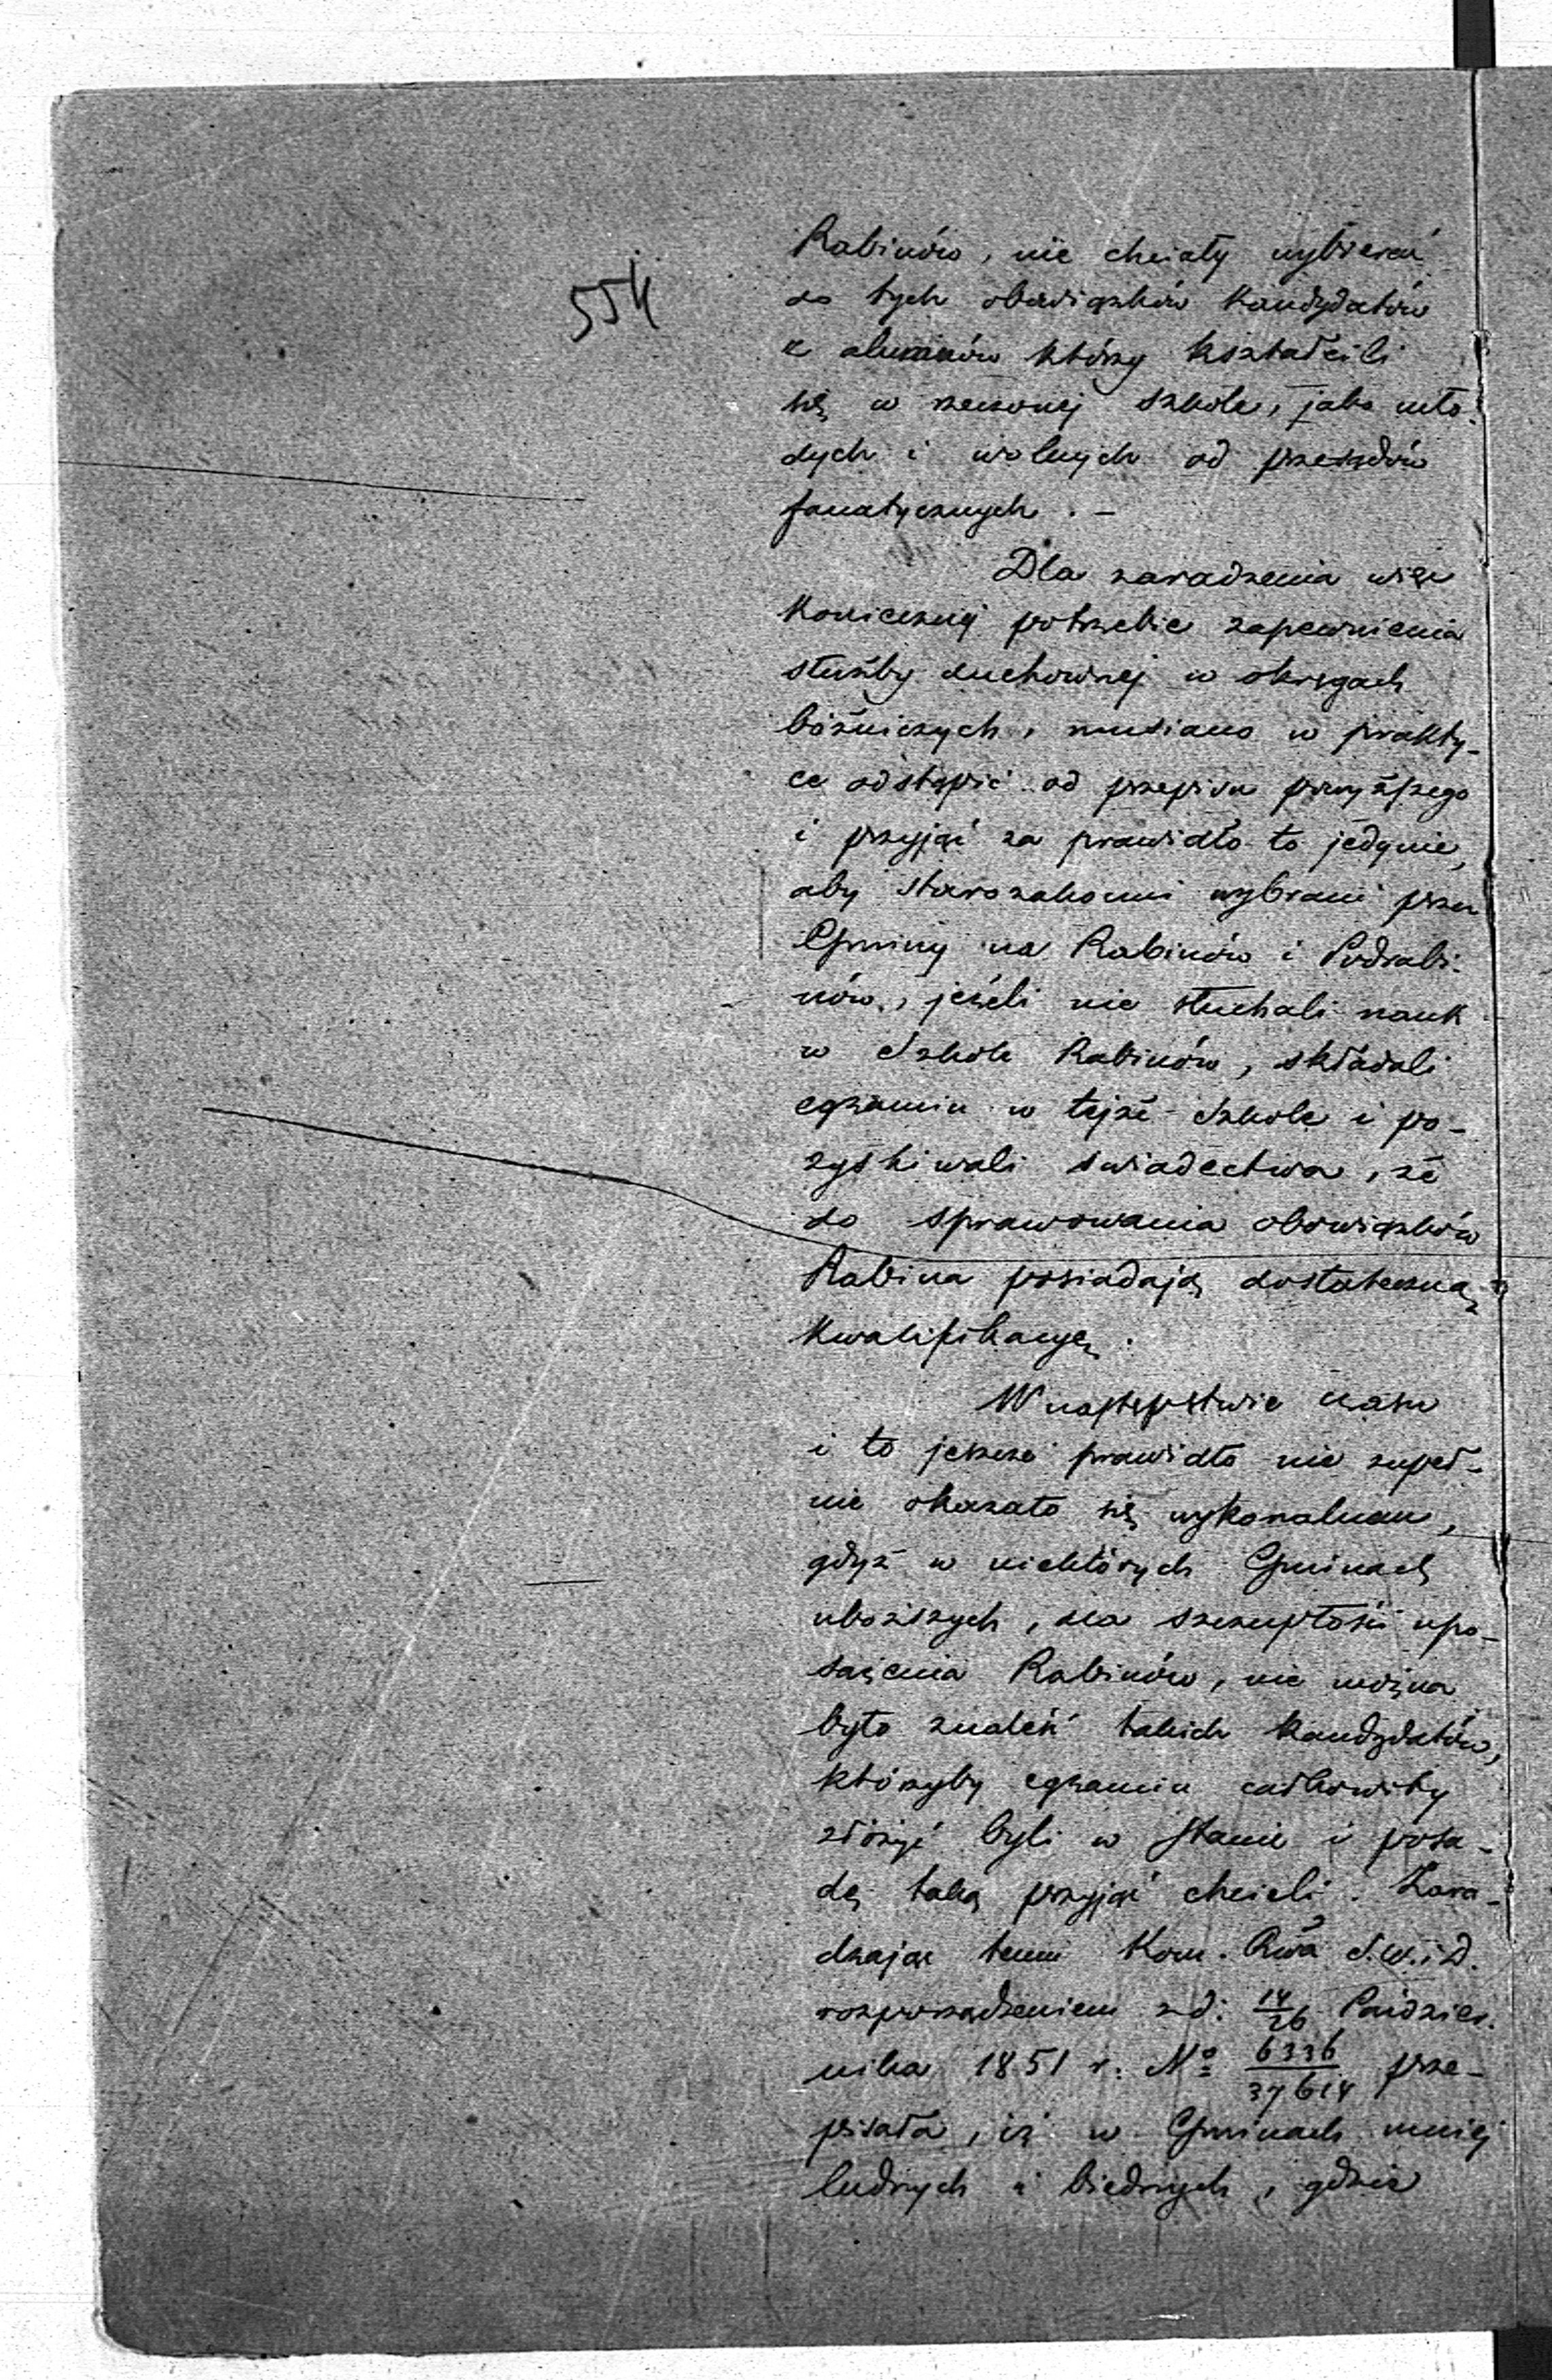 554
Rabinów, nie chciały wybierać
do tych obowiązków Kandydatów
z alumnów którzy kształcili
się w rzeczonej szkole, jako mło-
dych i wolnych od przesądów
fanatycznych. –
Dla zaradzenia więc
Koniecznej potrzebie zapewnienia
służby duchownej w okręgach
bóżniczych, musiano w prakty-
ce odstąpić od przepisu powyższego
i przyjąć za prawidło to jedynie,
aby starozakonni wybrani przez
Gminy na Rabinów i Podrabi-
nów, jeżeli nie słuchali nauk
w Szkole Rabinów, składali
egzamin w tejże Szkole i po-
zyskiwali świadectwa, że
do sprawowania obowiązków
Rabina posiadają dostateczną
Kwalifikacyę.
W następstwie czasu
i to jeszcze prawidło nie zupeł-
nie okazało się wykonalnem,
gdyż w niektórych Gminach
uboższych, dla szczupłości upo-
sażenia Rabinów, nie można
było znaleść takich kandydatów,
którzyby egzamin całkowity
złożyć byli w stanie i posa-
dę taką przyjąć chcieli. Zara-
dzając temu Kom. Rwa S.W.iD.
rozporządzeniem z d: 14/26 Paździer-
nika 1851 r. No 6336/37614 prze-
pisała, iż w Gminach mniej
ludnych i biednych, gdzie